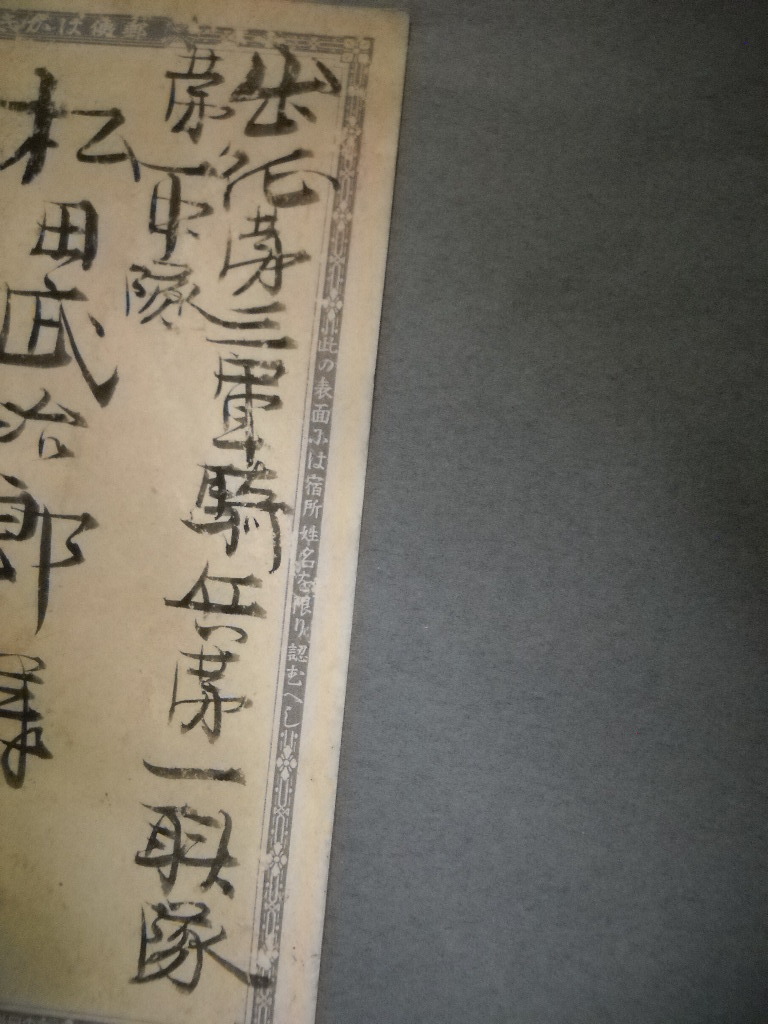 郵便はがき
此の表面には宿所姓名を限り認むへし
出征第三軍騎兵第一聯隊
第一中隊
松田武治郎様